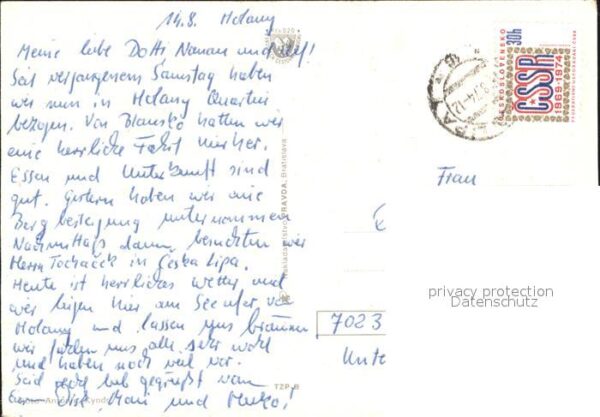 14.8. Holany
Meine liebe Dotti Nanan und
Seit vergangenem Samstag haben
wir nun in Holany Quartier
bezogen. Von Blansko hatten wir
eine herrliche Fahrt hierher.
Essen und Unterkunft sind
gut. Gestern haben wir eine
Berg besteigung unternommen
Nachmittags dann, besuchten wir
Herrn Tochaček in Česka Lipa.
Heute ist herrliches Wetter und
wir liegen hier am Seeufer von
Holany und lassen uns bräunen
wir fühlen uns alle sehr wohl
und haben noch viel vor.
Seid recht lieb gegrüßt von
und
PRAVDA, Bratislava
TZP-B
ČESKOSLOVENSKO
30h
ČSSR
1969-1974
Frau
7023
Unte
privacy protection
Datenschutz